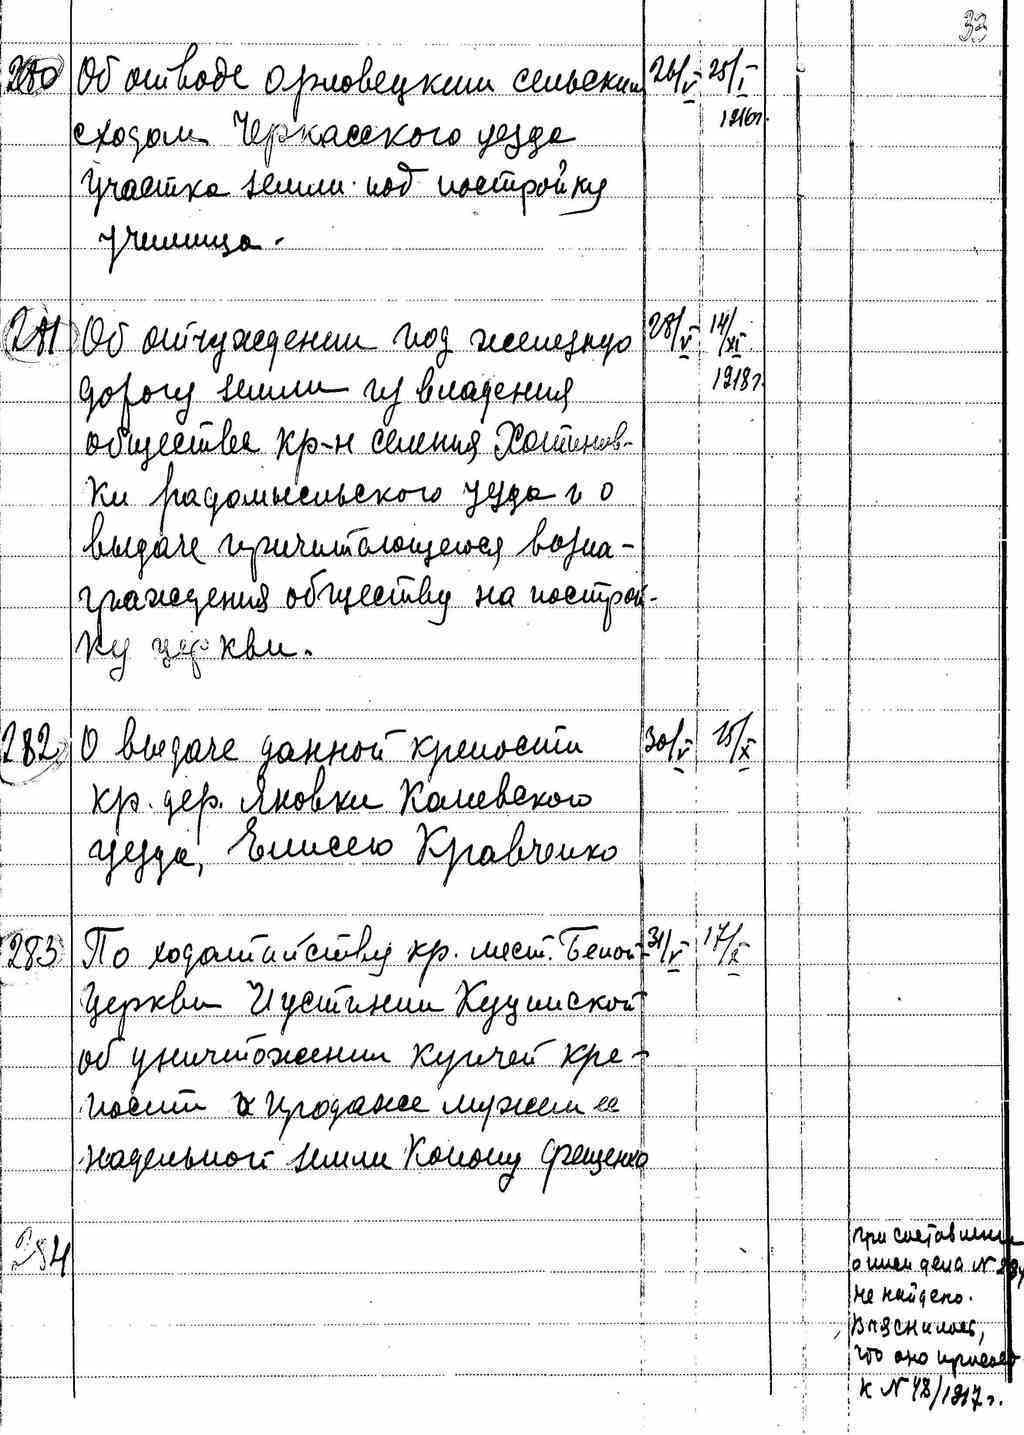 33
280 Об отводе Орловецким сельским 26/V 25/I
сходом Черкасского уезда 1916г.
участка земли под постройку
училища.
281 Об отчуждении под железную 28/V 14/XI
дорогу земли из владения 1918г.
общества кр-н селения Хотинов-
ки Радомысльского уезда и о
выдаче причитающегося возна-
граждения обществу на построй-
ку церкви.
282 О выдаче данной крепости 30/V 15/X
кр. дер. Яновки Каневского
уезда, Елисею Кравченко
283 По ходатайству кр. мест. Белой 31/V 17/X
Церкви Иустинии Куцинской
об уничтожении купчей кре-
пости о продаже мужем ее
надельной земли Конону
284
при составлении
описи дела N 284
не найдено.
Выяснилось,
что оно
к N 48/1917 г.